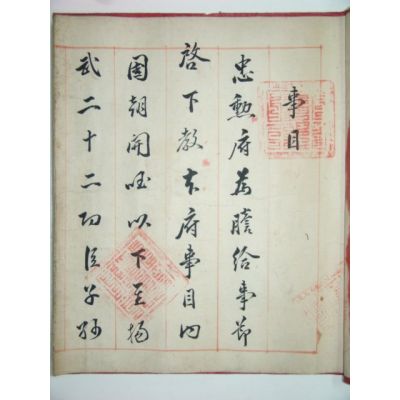 事目
忠勳府為謄給事節
啓下教本府事目内
國朝開國以下至揚
武二十二功臣子孫